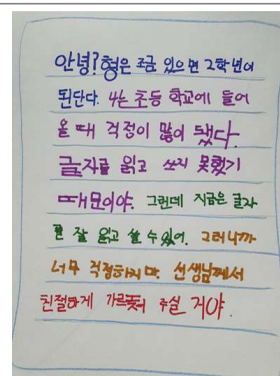 안녕? 형은 조금 있으면 2학년이
된단다. 나는 초등 학교에 들어
올 때 걱정이 많이 됐다.
글자를 읽고 쓰지 못했기
때문이야. 그런데 지금은 글자
를 잘 읽고 쓸 수 있어. 그러니까
너무 걱정하지 마. 선생님께서
친절하게 가르쳐 주실 거야.